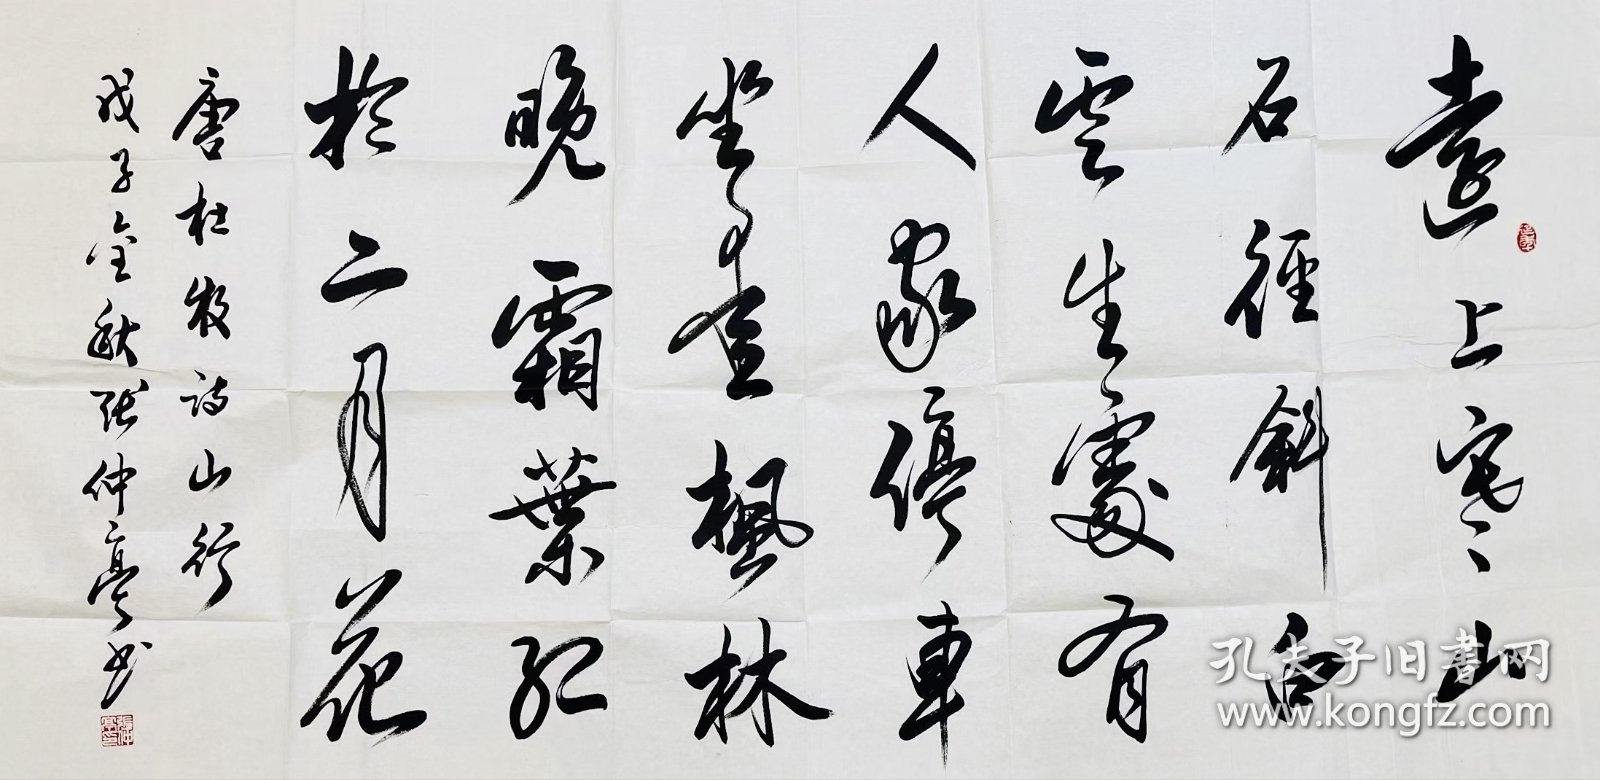 遠上寒山
石徑斜白
雲生處有
人家停車
坐愛楓林
晚霜葉紅
於二月花
唐杜牧詩山行
戊子金秋張仲亭书
孔夫子旧書网
www.kongfz.com